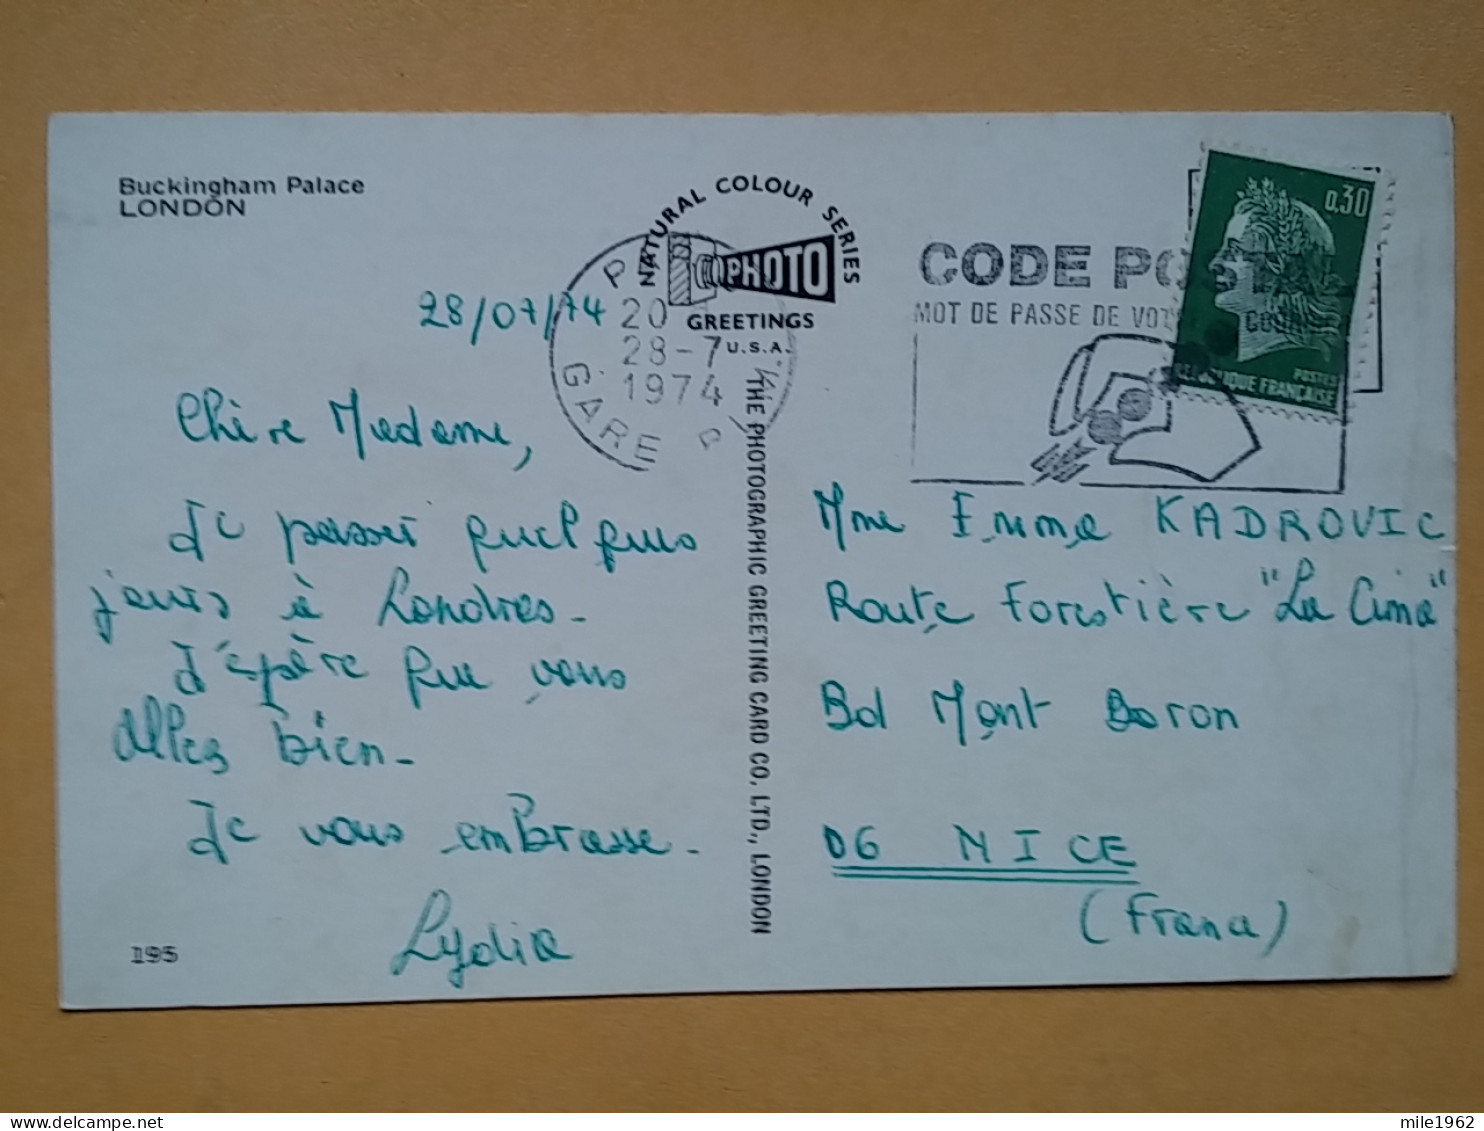 Buckingham Palace
LONDON
NATURAL COLOUR SERIES
PHOTO
GREETINGS
U.S.A.
THE PHOTOGRAPHIC GREETING CARD CO, LTD., LONDON
20
28-7
1974
GARE P
0,30
POSTES
CODE
MOT DE PASSE DE
28/07/74
Chère Madame,
Je passe quelques
jours à Londres.
J'espère que vous
allez bien.
Je vous embrasse.
Lydia
195
Mme Emma KADROVIC
Route Forestière "La Cima"
Bd Mont Boron
06 NICE
(France)
mile1962